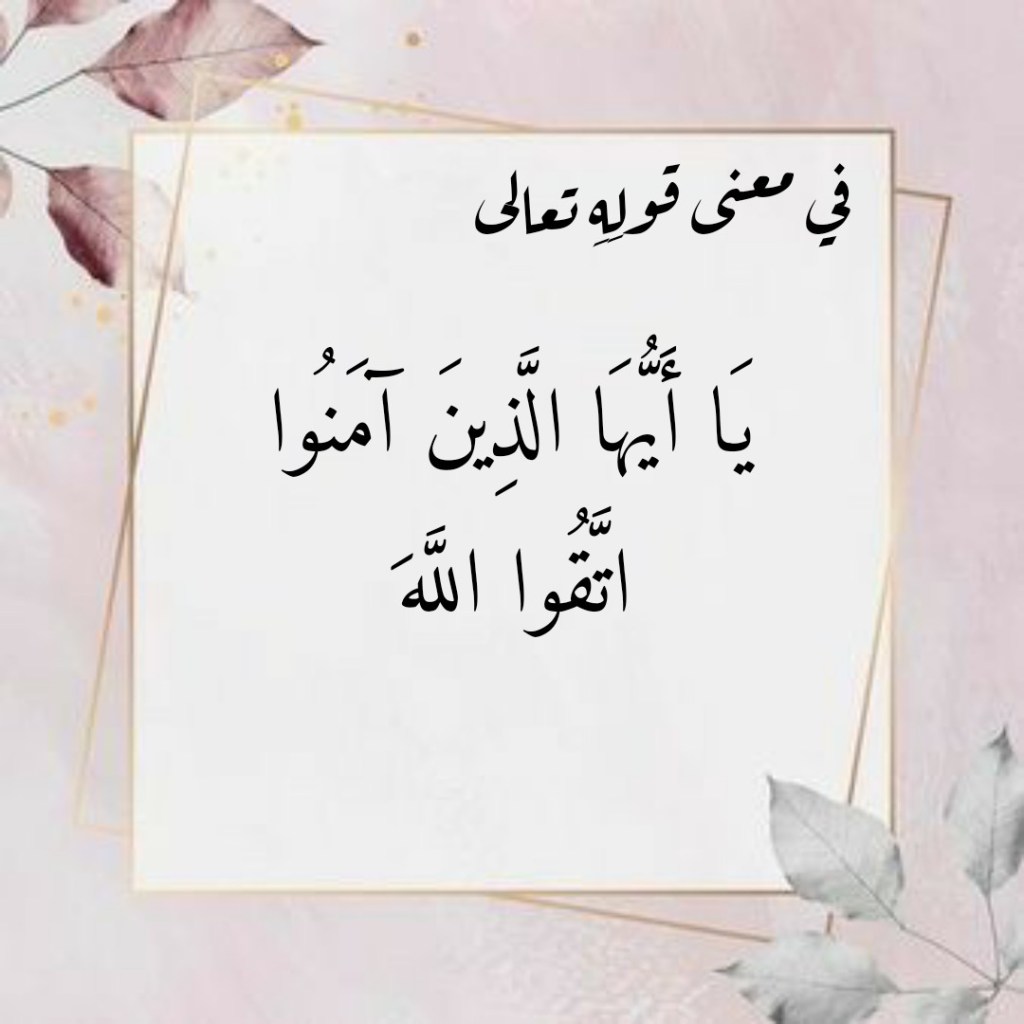 في معنى قولِهِ تعالى
يَا أَيُّهَا الَّذِينَ آمَنُوا
اتَّقُوا اللَّهَ